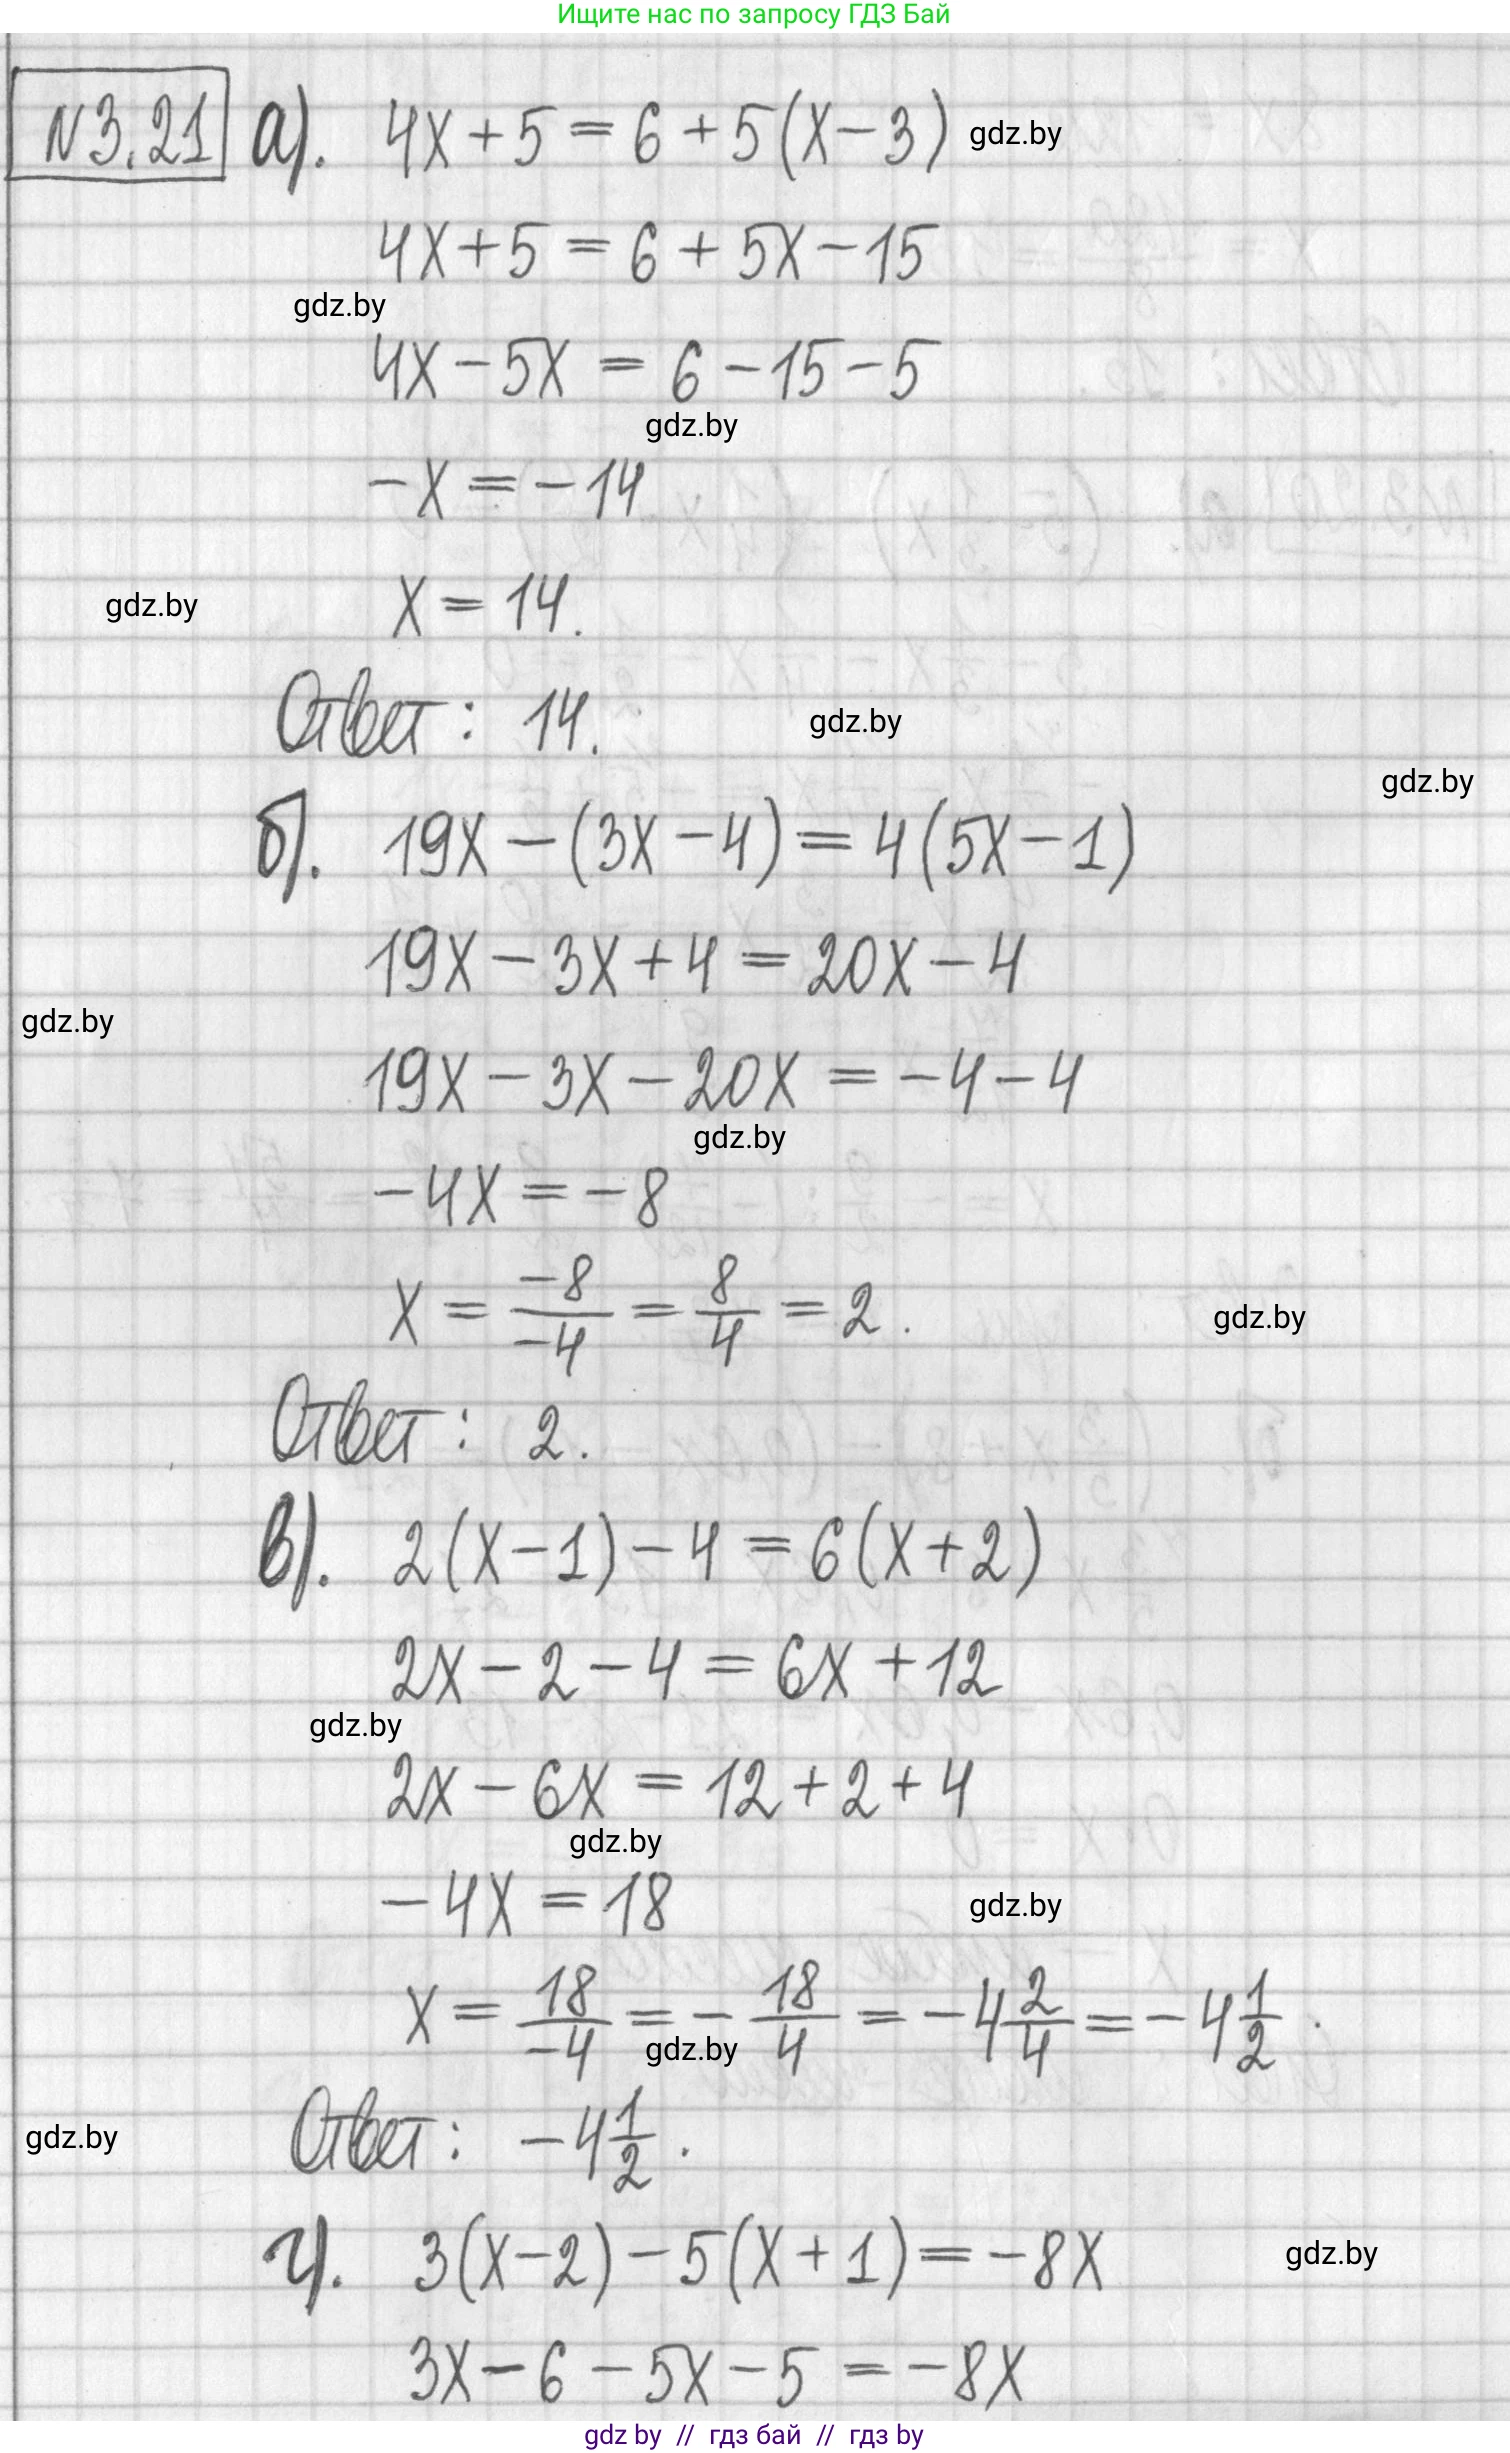 Ищите нас по запросу ГДЗ Бай
N3.21 а). 4x + 5 = 6 + 5(x - 3) gdz.by
4x + 5 = 6 + 5x - 15
gdz.by
4x - 5x = 6 - 15 - 5
gdz.by
-x = -14
gdz.by x = 14.
Ответ: 14. gdz.by
gdz.by
б). 19x - (3x - 4) = 4(5x - 1)
19x - 3x + 4 = 20x - 4
gdz.by
19x - 3x - 20x = -4 - 4
gdz.by
-4x = -8
x = -8/-4 = 8/4 = 2. gdz.by
Ответ: 2.
в). 2(x - 1) - 4 = 6(x + 2)
2x - 2 - 4 = 6x + 12
gdz.by
2x - 6x = 12 + 2 + 4
gdz.by
-4x = 18 gdz.by
x = 18/-4 = -18/4 = -4 2/4 = -4 1/2.
gdz.by
Ответ: -4 1/2.
gdz.by
г). 3(x - 2) - 5(x + 1) = -8x gdz.by
3x - 6 - 5x - 5 = -8x
gdz by // гдз бай // гдз by